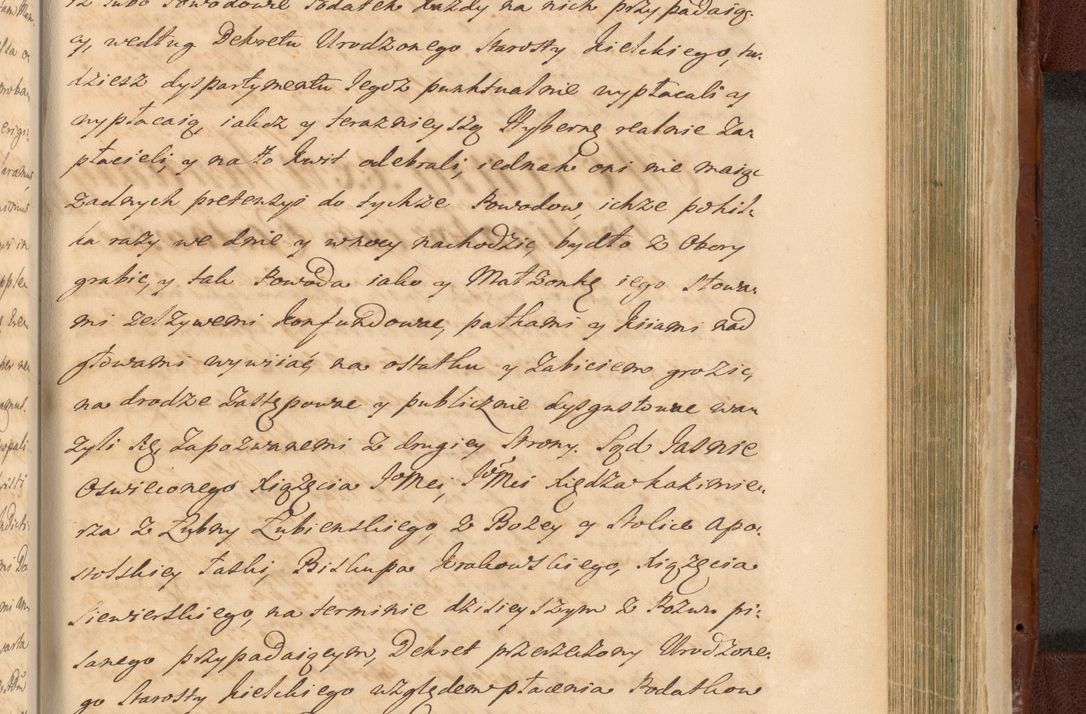 rz lubo Powodowe Podatek każdy na nich przypadaią:
cy, według Dekretu Urodzonego Starosty Kielckiego, tu:
dziesz dyspartymentu Iegoż punktualnie wypłacali y
wypłacaią, iakoż y teraznieyszą Hybernę realnie Za:
płacieli, y na to kwit odebrali, iednak oni nie maiąc
żadnych pretensyi do tychże Powodow, ichże po kil:
ka razy we dnie y w nocy nachodzić, bydło z Obory
grabić, y tak Powoda iako y Małżonkę iego słowa:
mi zelżywemi konfundowac, pałkami y kiiami nad
głowami wywiiać, na ostatku y Zabiciem grozić,
na drodze Zastępowac y publicznie dysgustowac wa:
żyli się Zapozwanemi z drugiey Strony. Sąd Jasnie
Oswieconego Xiążęcia JoMci, JoMci Xiędza Kazimie:
rza z Łubny Łubienskiego, z Bożey y Stolice Apo:
stolskiey łaski, Biskupa Krakowskiego, Xiążęcia
Siewierskiego, na terminie dzisieyszym z Pozwu pi:
sanego przypadaiącym, Dekret przerzeczony Urodzone:
go Starosty Kielckiego względem płacenia Podatkow